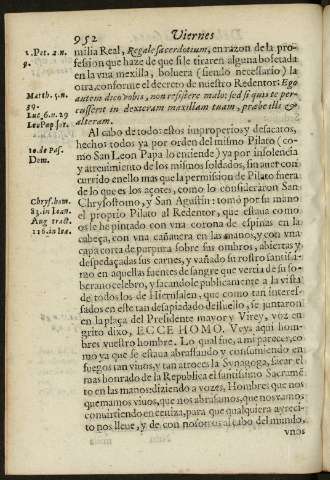 952 Viernes
1. Pet. 2. n.
9.
milia Real, Regale sacerdotium, en razon de la pro-
fession que haze de que si le tiraren alguna bofetada
en la vna mexilla, boluera (siendo necessario) la
otra, conforme el decreto de nuestro Redentor: Ego
Matth. 5. n.
39.
Luc. 6. n. 29
Leo Pap. ser.
autem dico vobis, non resistere malo: sed si quis te per-
cusserit in dexteram maxillam tuam, præbe illi &
alteram.
10. de Pas.
Dom.
Al cabo de todo: estos improperios y desacatos,
hechos todos ya por orden del mismo Pilato (co-
mo San Leon Papa lo entiende) ya por insolencia
y atreuimiento de los mismos soldados, sin auer con-
currido en ello mas que la permission de Pilato fuera
de lo que es los açotes, como lo consideraron San
Chrys. hom.
83. in Ioan.
Aug. tract.
116. in Ioa.
Chrysostomo, y San Agustin: tomò por su mano
el proprio Pilato al Redentor, que estaua como
os le he pintado con vna corona de espinas en la
cabeça, con vna cañauera en las manos, y con vna
capa corta de purpura sobre sus ombros, abiertas y
despedaçadas sus carnes, y vañado su rostro santissi-
mo en aquellas fuentes de sangre que vertia de su so-
berano celebro, y sacandole publicamente a la vista
de todos los de Hierusalen, que como tan interes-
sados en este tan desapiadado desuello, se juntaron
en la plaça del Presidente mayor y Virey, voz en
grito dixo, ECCE HOMO. Veys aqui hom-
bres vuestro hombre. Lo qual fue, a mi parecer, co-
mo ya que se estaua abrassando y consumiendo en
fuegos tan viuos, y tan atroces la Synagoga, sacar el
mas honrado de la Republica el santissimo Sacramē
to en las manos diziendo a vozes, Hombres que nos
quemamos viuos, que nos abrasamos, que nos vamos
conuirtiendo en ceniza, para que qualquiera ayreci-
to nos lleue, y de con nosotros al cabo del mundo,
vnos